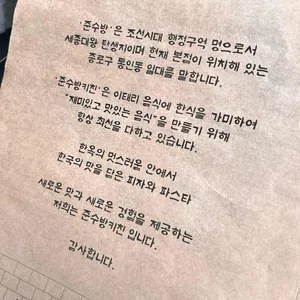 '준수방'은 조선시대 행정구역 명으로서
세종대왕 탄생지이며 현재 본점이 위치해 있는
종로구 통인동 일대를 말합니다.
'준수방키친'은 이태리 음식에 한식을 가미하여
"재미있고 맛있는 음식"을 만들기 위해
항상 최선을 다하고 있습니다.
한옥의 멋스러움 안에서
한국의 맛을 담은 피자와 파스타
새로운 맛과 새로운 경험을 제공하는
저희는 준수방키친 입니다.
감사합니다.